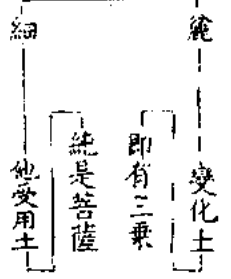 變化土
即有三乘
純是菩薩
細
他受用土